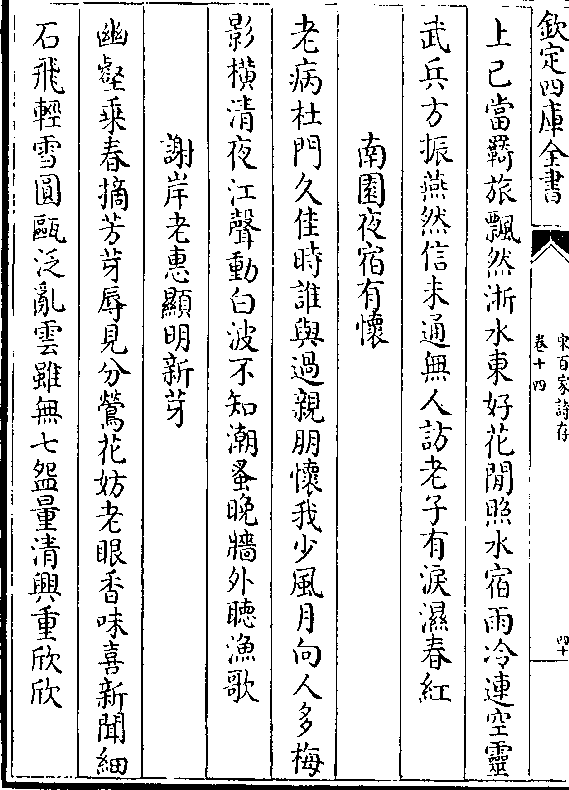 欽定四庫全書
宋百家詩存
卷十四
四十
上已當羇旅飄然浙水東好花閒照水宿雨冷連空靈
武兵方振燕然信未通無人訪老子有淚濕春紅
南園夜宿有懷
老病杜門久佳時誰與過親朋懷我少風月向人多梅
影橫清夜江聲動白波不知潮蚤晚牆外聽漁歌
謝岸老惠顯明新芽
幽壑乗春摘芳芽辱見分鶯花妨老眼香味喜新聞細
石飛輕雪圓甌泛亂雲雖無七盌量清興重欣欣